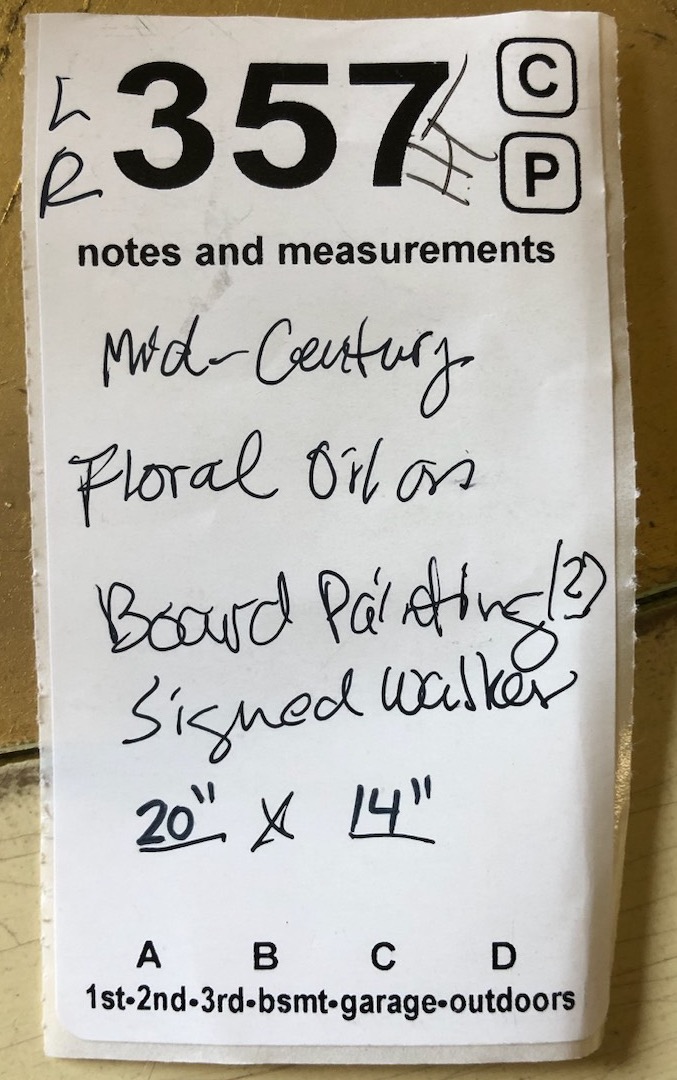 LR 357 C
P
notes and measurements
Mid-Century
Floral Oil on
Board Painting (2)
Signed Walker
20" X 14"
A B C D
1st•2nd•3rd•bsmt•garage•outdoors